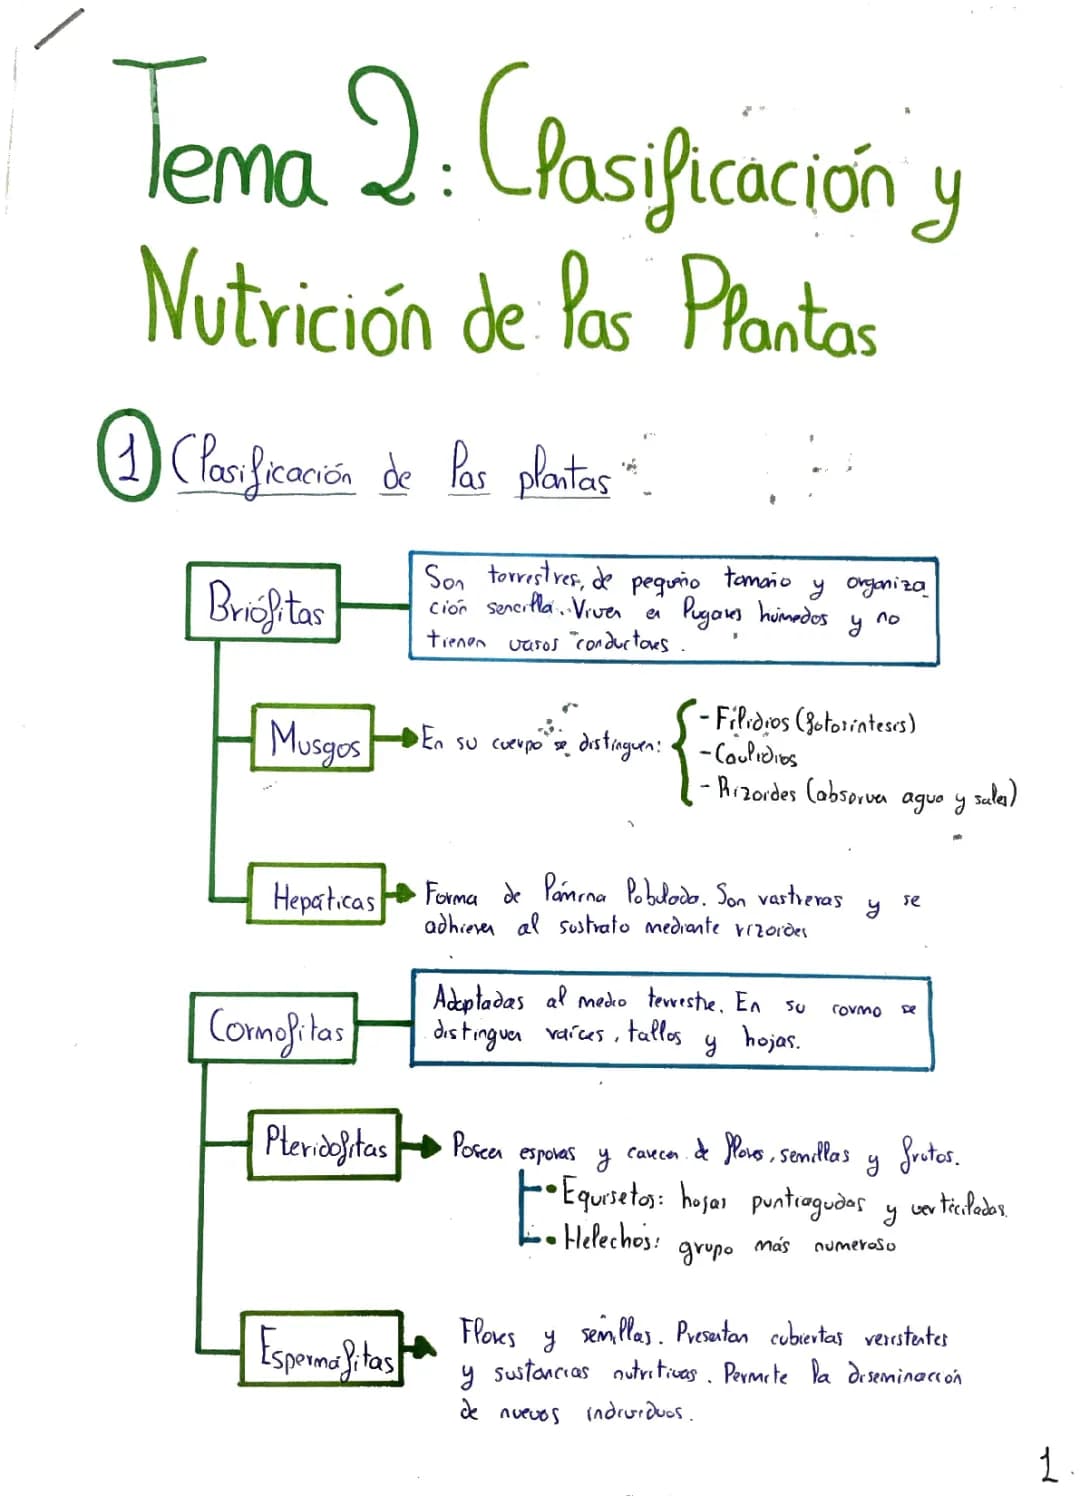 Tema 2: Clasificación y
Nutrición de las Plantas
1 Clasificación de las plantas
Briófitas
Son torrestres, de pequeño tamaño y organiza
ción sencilla. Viven en lugares húmedos y no
tienen vasos conductores.
Musgos
En su cuerpo se distinguen:
- Filidios (fotosíntesis)
- Caulidios
- Rizoides (absorven agua y sales)
Hepáticas
Forma de lámina lobulada. Son rastreras y se
adhieren al sustrato mediante rizoides
Cormofitas
Adaptadas al medio terrestre. En su cormo se
distinguen raíces, tallos y hojas.
Pteridofitas
Poseen esporas y carecen de flores, semillas y frutos.
• Equisetos: hojas puntiagudas y verticiladas.
• Helechos: grupo más numeroso
Espermafitas
Flores y semillas. Presentan cubiertas resistentes
y sustancias nutritivas. Permite la diseminación
de nuevos individuos.
1